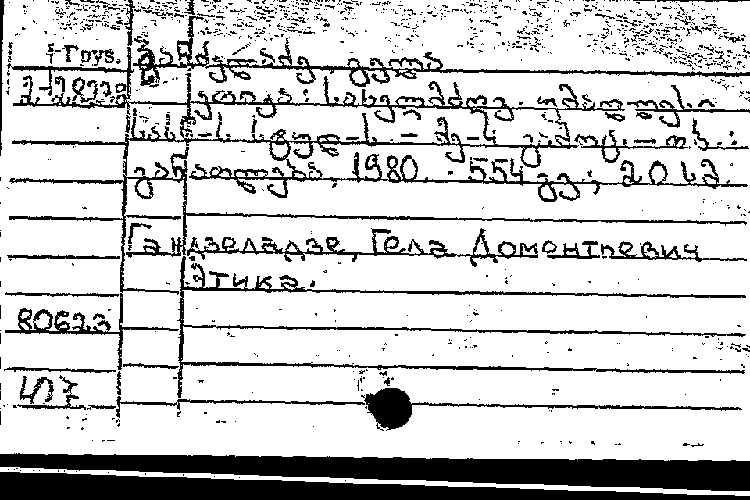 Груз. ბანძელაძე, გელა
ეთიკა: სახელმძღვ. უმაღლესი
სას-ს სტუდ-ს. - მე-4 გამოც. - თბ.:
განათლება, 1980. - 554 გვ.; 20 სმ.
Гандзеладзе, Гела Доментиевич
Этика.
80623
417